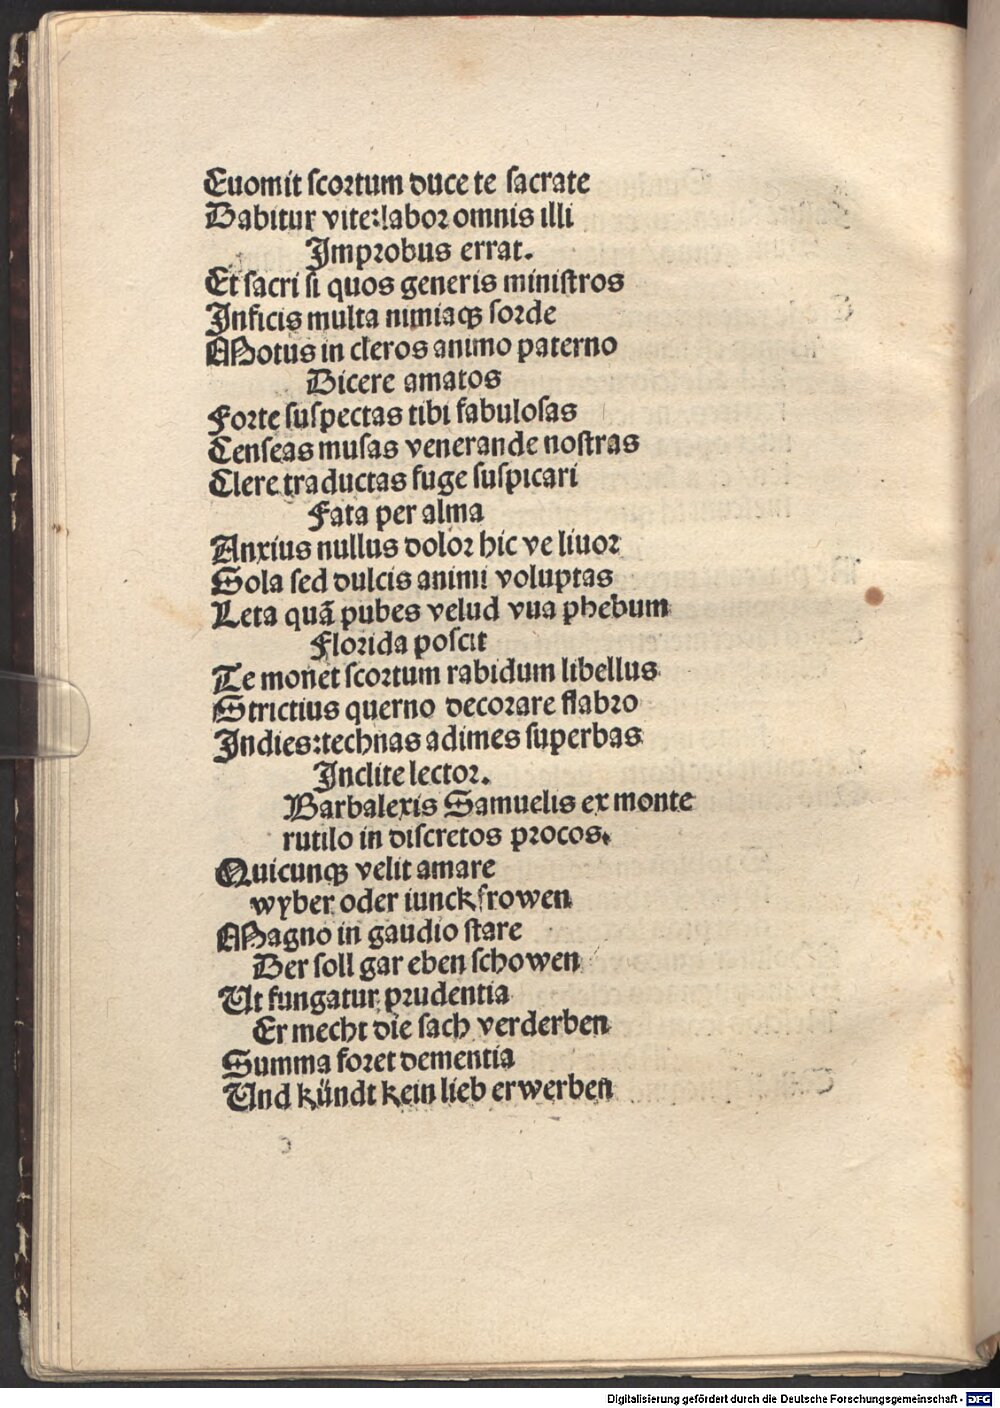 Euomit scortum duce te sacrate
Dabitur vite: labor omnis illi
Improbus errat.
Et sacri si quos generis ministros
Inficis multa nimiaqꝫ sorde
Motus in cleros animo paterno
Dicere amatos
Forte suspectas tibi fabulosas
Censeas musas venerande nostras
Clere traductas fuge suspicari
Fata per alma
Anxius nullus dolor hic ve liuor
Sola sed dulcis animi voluptas
Leta quã pubes velud vua phebum
Florida poscit
Te monet scortum rabidum libellus
Strictius querno decorare flabro
Indies: technas adimes superbas
Inclite lector.
Barbalexis Samuelis ex monte
rutilo in discretos procos.
Quicunqꝫ velit amare
wyber oder iunckfrowen
Magno in gaudio stare
Der soll gar eben schowen
Ut fungatur prudentia
Er mecht die sach verderben
Summa foret dementia
Und kündt kein lieb erwerben
Digitalisierung gefördert durch die Deutsche Forschungsgemeinschaft - DFG